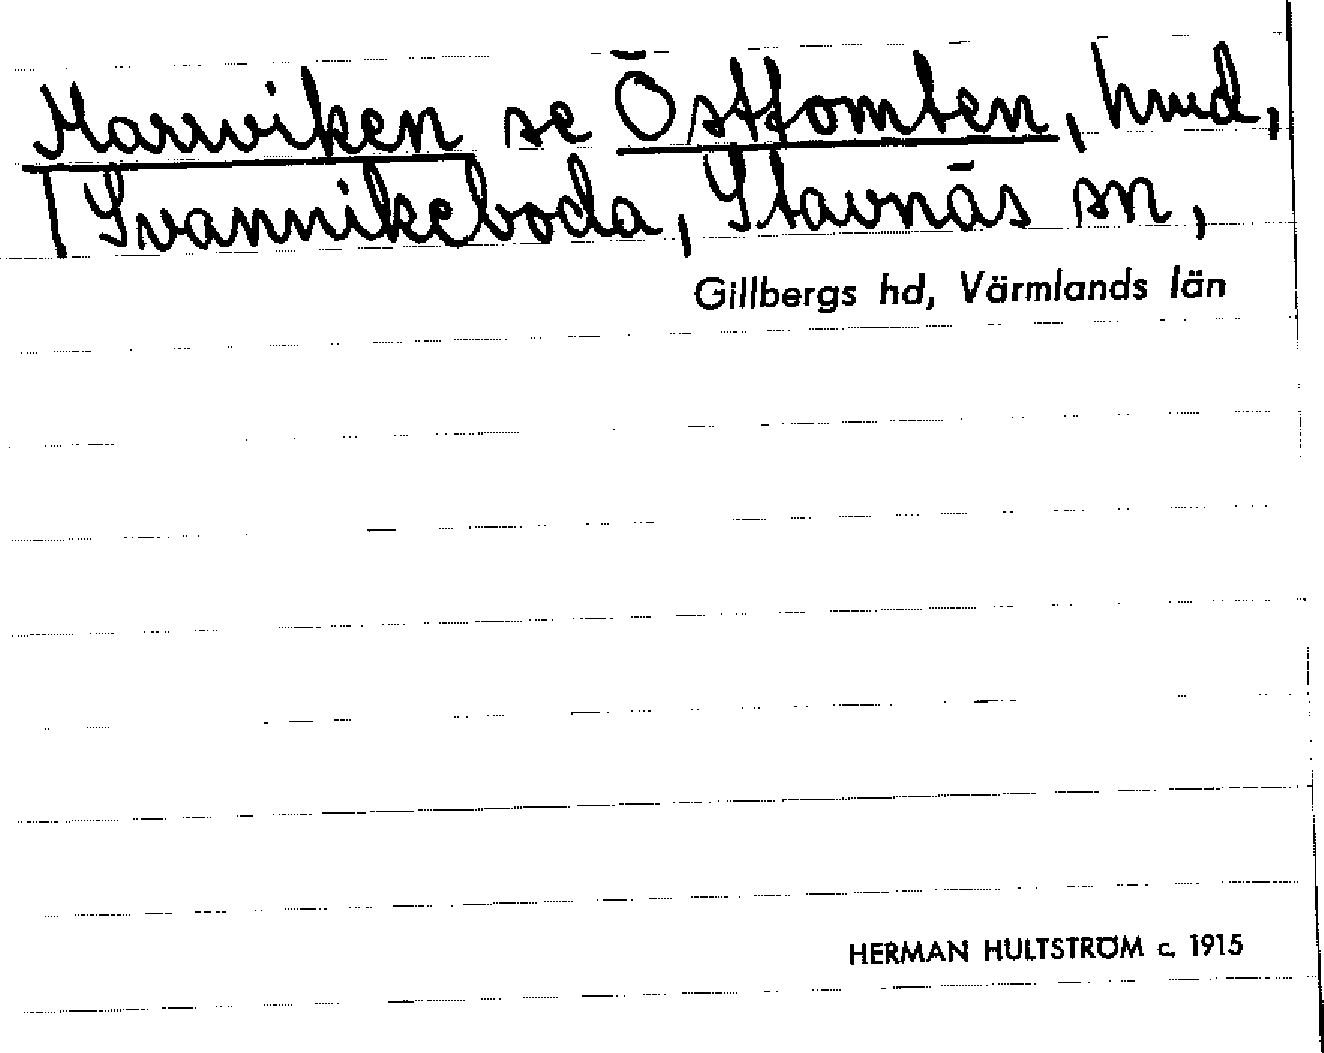 Marrviken se Östtomten, hmd,
1 Svannikeboda, Stavnäs sn,
Gillbergs hd, Värmlands län
HERMAN HULTSTRÖM c. 1915